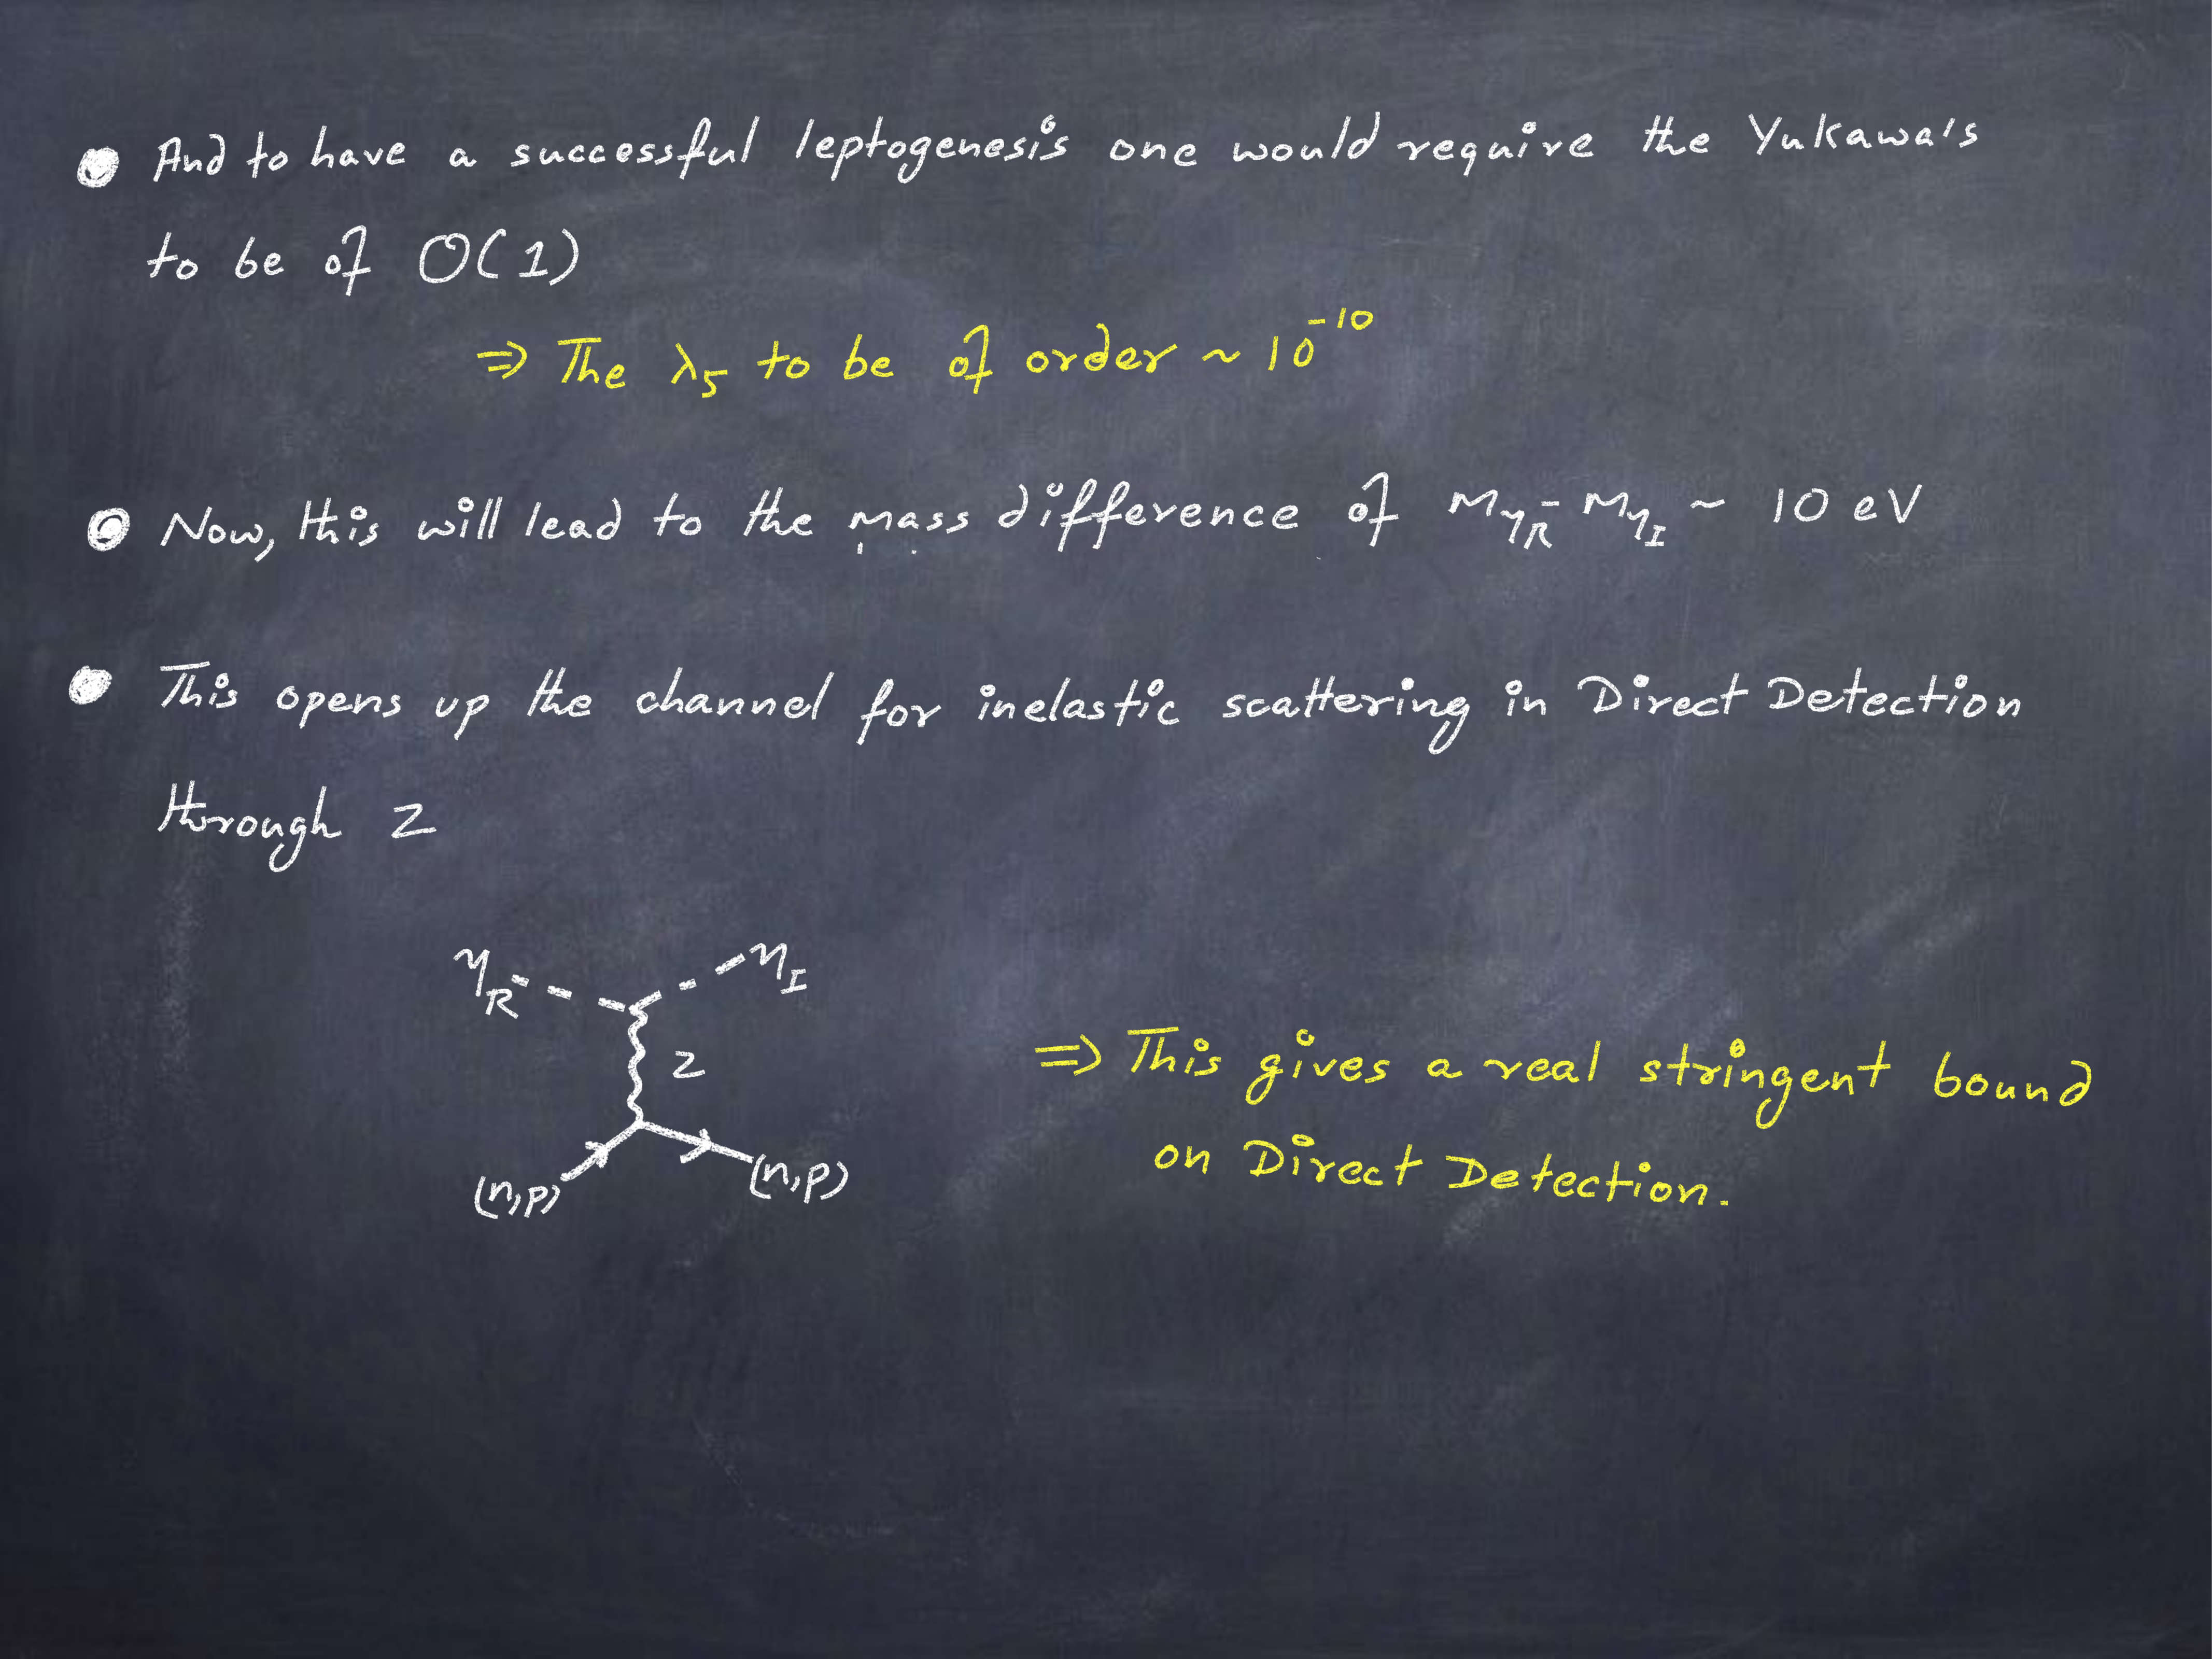 And to have a successful leptogenesis one would require the Yukawa's
to be of O(1)
⇒ The λ₅ to be of order ~ 10⁻¹⁰
Now, this will lead to the mass difference of m_{η_R} - m_{η_I} ~ 10 eV
This opens up the channel for inelastic scattering in Direct Detection
through Z
η_R η_I
Z
(n,p) (n,p)
⇒ This gives a real stringent bound
on Direct Detection.